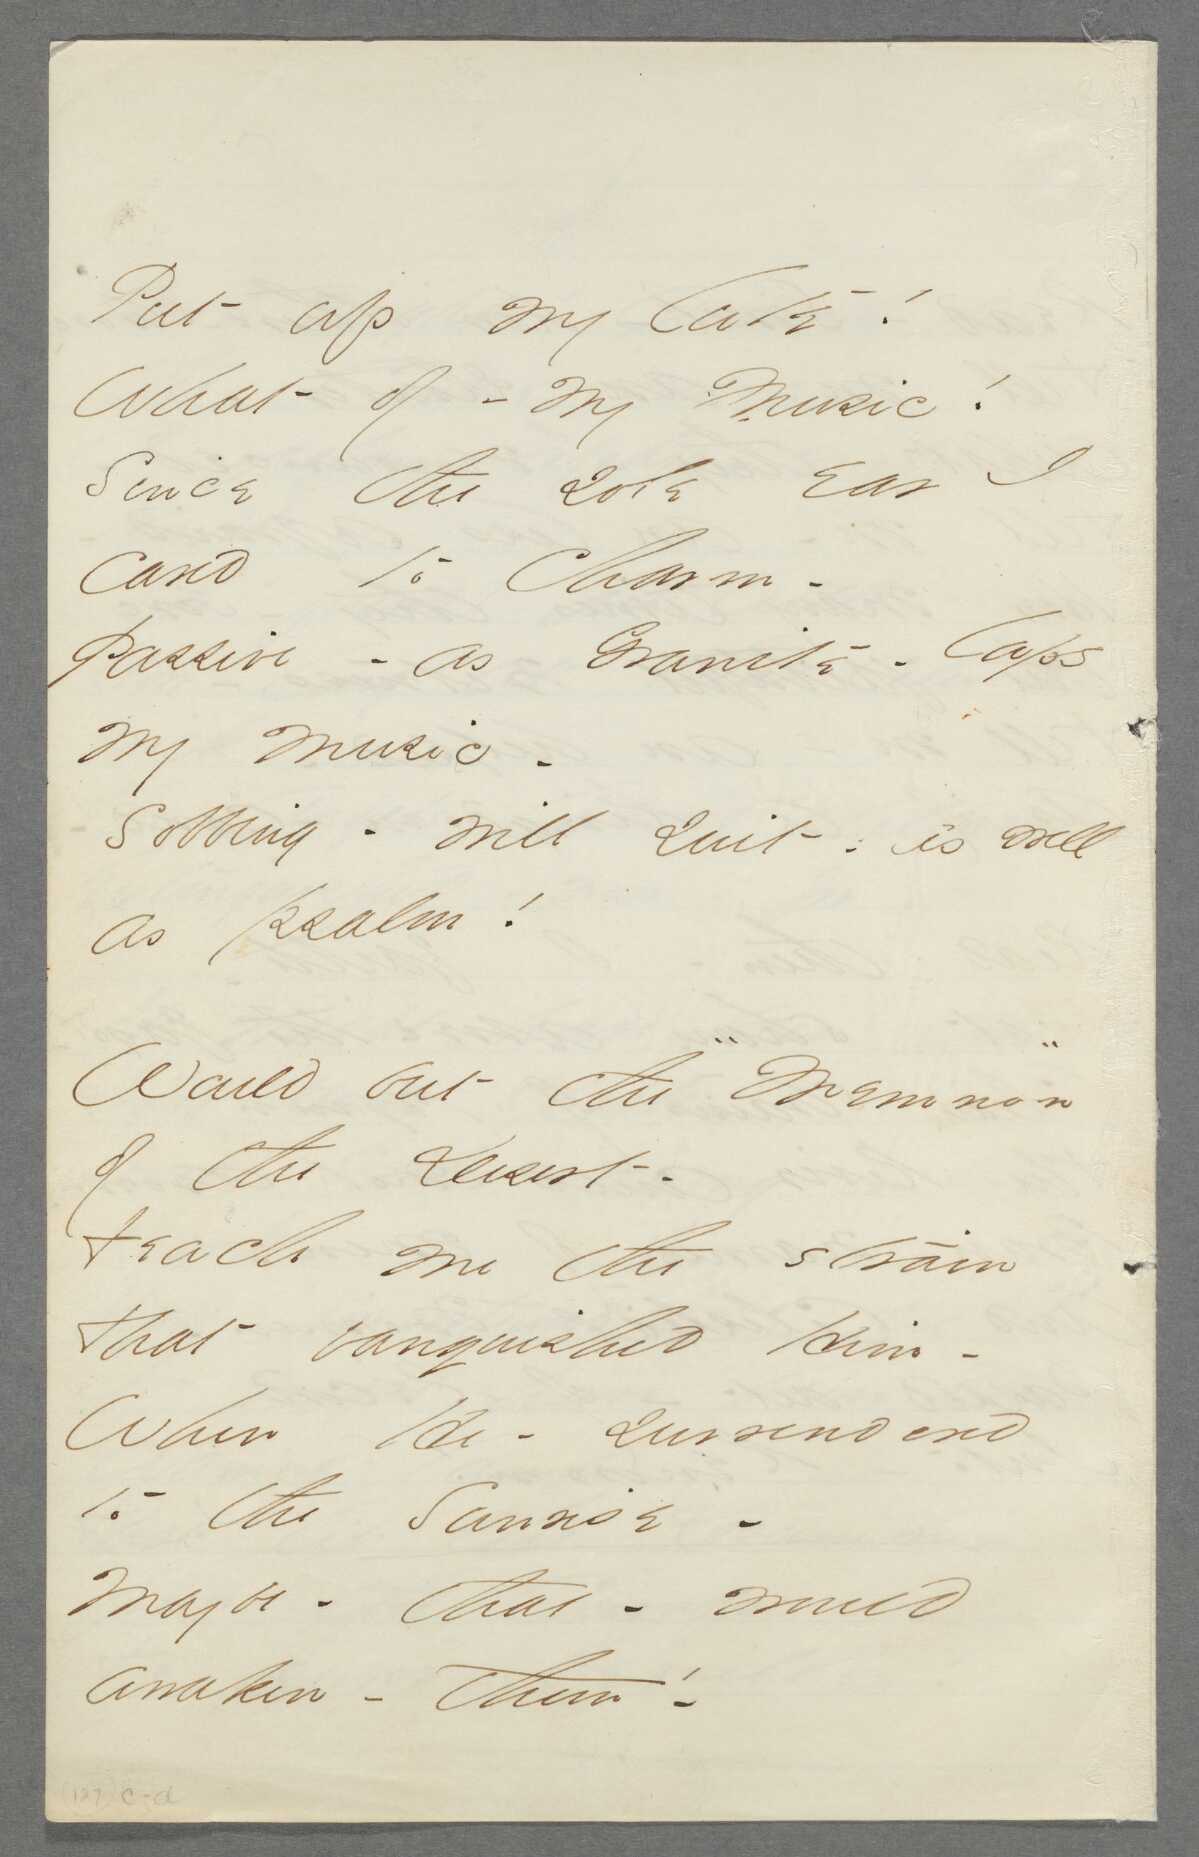 Put up my lute!
What of - my Music!
Since the sole ear I
cared to charm -
Passive - as Granite - laps
my music -
Sobbing - will suit - as well
as psalm!
Would but the "Memnon"
of the Desert -
teach me the strain
that vanquished Him -
When He - surrendered
to the Sunrise -
Maybe - that - would
awaken - them!
(127) c-d